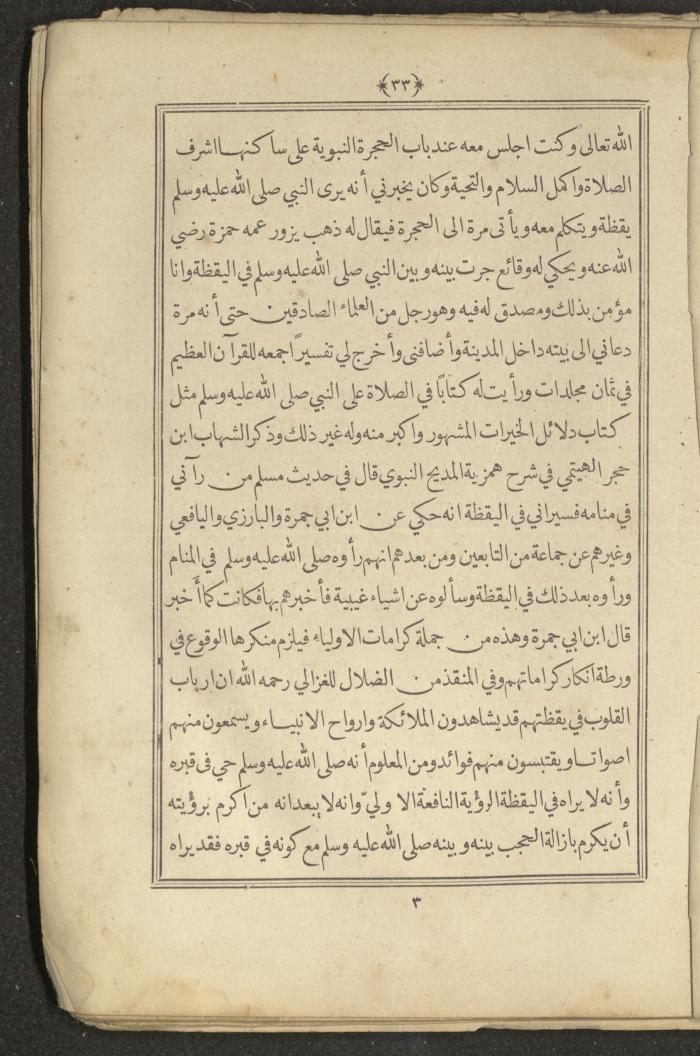 ﴿٣٣﴾
الله تعالى وكنت اجلس معه عند باب الحجرة النبوية على ساكنها اشرف
الصلاة واكمل السلام والتحية وكان يخبرني أنه يرى النبي صلى الله عليه وسلم
يقظة ويتكلم معه ويأتى مرة الى الحجرة فيقال له ذهب يزور عمه حمزة رضي
الله عنه ويحكي له وقائع جرت بينه وبين النبي صلى الله عليه وسلم في اليقظة وانا
مؤمن بذلك ومصدق له فيه وهو رجل من العلماء الصادقين حتى أنه مرة
دعاني الى بيته داخل المدينة وأضافنى وأخرج لي تفسيرًا جمعه للقرآن العظيم
في ثمان مجلدات ورأيت له كتابًا في الصلاة على النبي صلى الله عليه وسلم مثل
كتاب دلائل الخيرات المشهور واكبر منه وله غير ذلك وذكر الشهاب ابن
حجر الهيتمي في شرح همزية المديح النبوي قال في حديث مسلم من رآني
في منامه فسيراني في اليقظة انه حكي عن ابن ابي جمرة والبارزي واليافعي
وغيرهم عن جماعة من التابعين ومن بعدهم انهم رأوه صلى الله عليه وسلم في المنام
ورأوه بعد ذلك في اليقظة وسألوه عن اشياء غيبية فأخبرهم بها فكانت كما أخبر
قال ابن ابي جمرة وهذه من جملة كرامات الاولياء فيلزم منكرها الوقوع في
ورطة انكار كراماتهم وفي المنقذ من الضلال للغزالي رحمه الله ان ارباب
القلوب في يقظتهم قد يشاهدون الملائكة وارواح الانبياء ويسمعون منهم
اصواتا ويقتبسون منهم فوائد ومن المعلوم أنه صلى الله عليه وسلم حي فى قبره
وأنه لا يراه في اليقظة الرؤية النافعة الا وليّ وانه لا يبعد انه من اكرم برؤيته
أن يكرم بازالة الحجب بينه وبينه صلى الله عليه وسلم مع كونه في قبره فقد يراه
٣